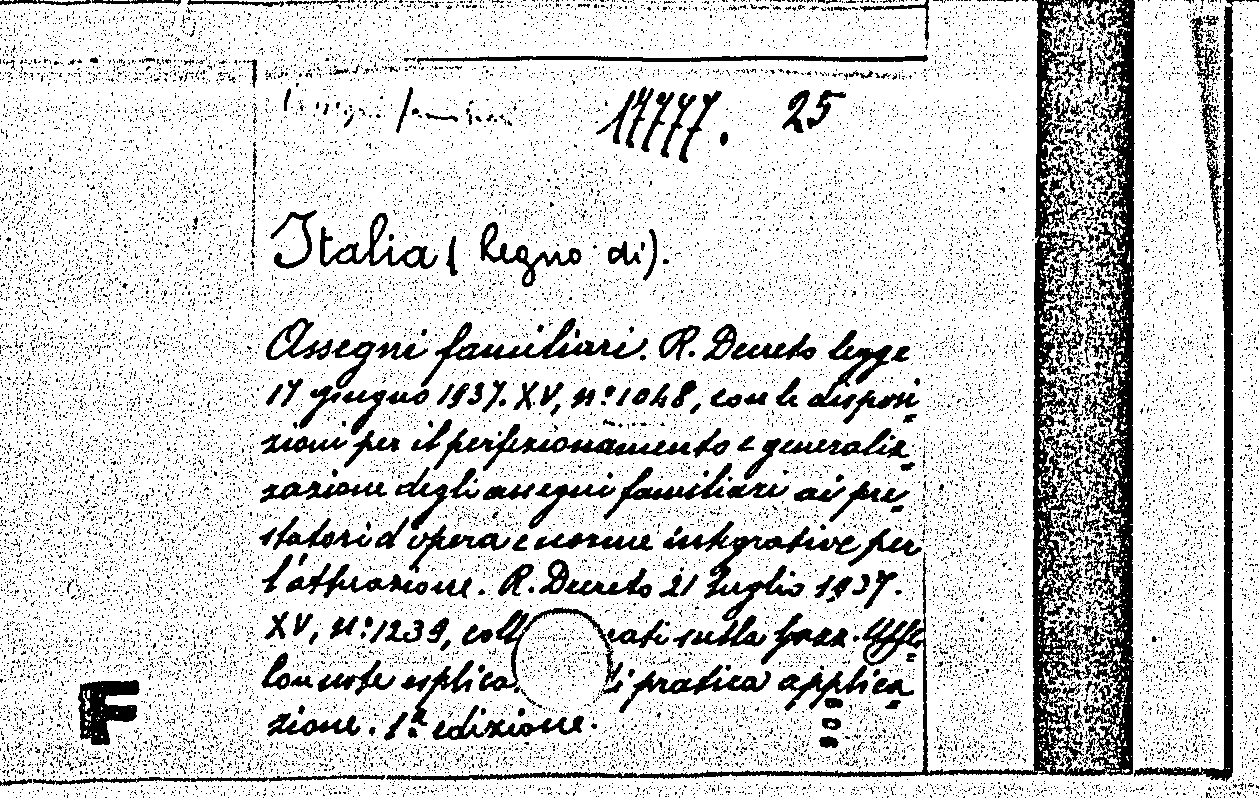 17777. 25
Italia (Regno di).
Assegni familiari. R. Decreto legge
17 giugno 1937. XV, nº. 1048, con le disposi=
zioni per il perfezionamento e generaliz=
zazione degli assegni familiari ai pre=
statori d'opera e norme integrative per
l'attuazione. R. Decreto 21 luglio 1937.
XV, nº. 1239, coll rati sulla Gazz. Uffle.
Con note esplica i pratica applica=
zione. 1ª edizione.
F